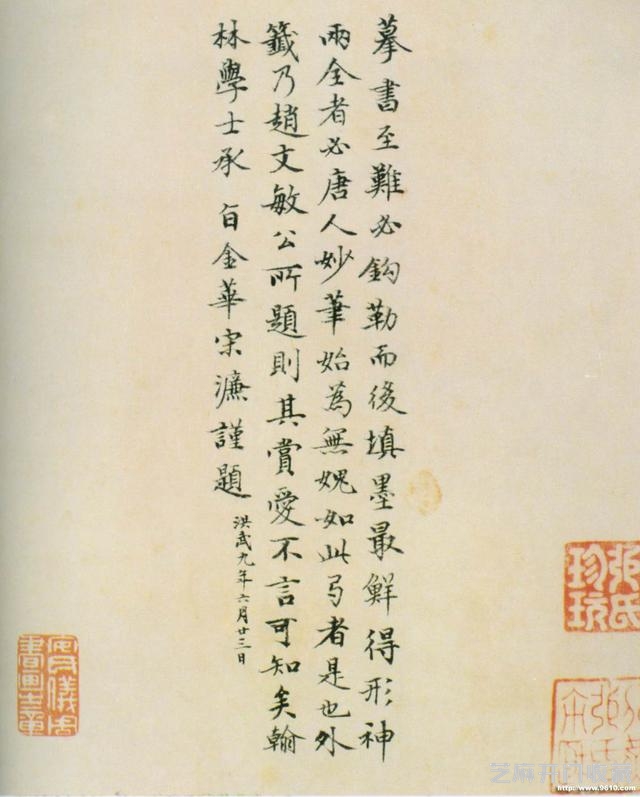 摹書至難必鈎勒而後填墨最鮮得形神
兩全者必唐人妙筆始為無媿如此弓者是也外
籤乃趙文敏公所題則其賞愛不言可知矣翰
林學士承旨金華宋濂謹題
洪武九年六月廿三日
張氏珍玩
安儀周書畫之章
芝麻开门收藏
http://www.9610.com